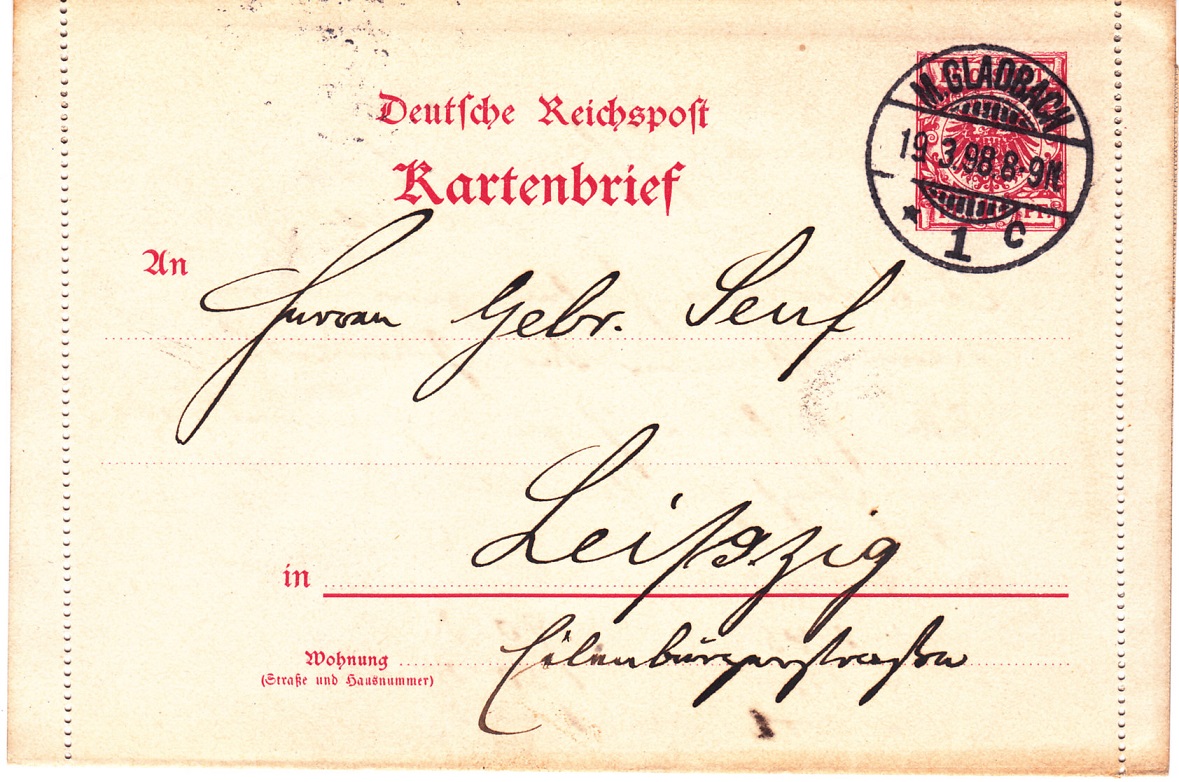 Deutsche Reichspost
Kartenbrief
M. GLADBACH
19.3.98.8-9N.
* 1 c
An
Herren Gebr. Senf
Leipzig
in
Eilenburgerstrasse
Wohnung
(Straße und Hausnummer)